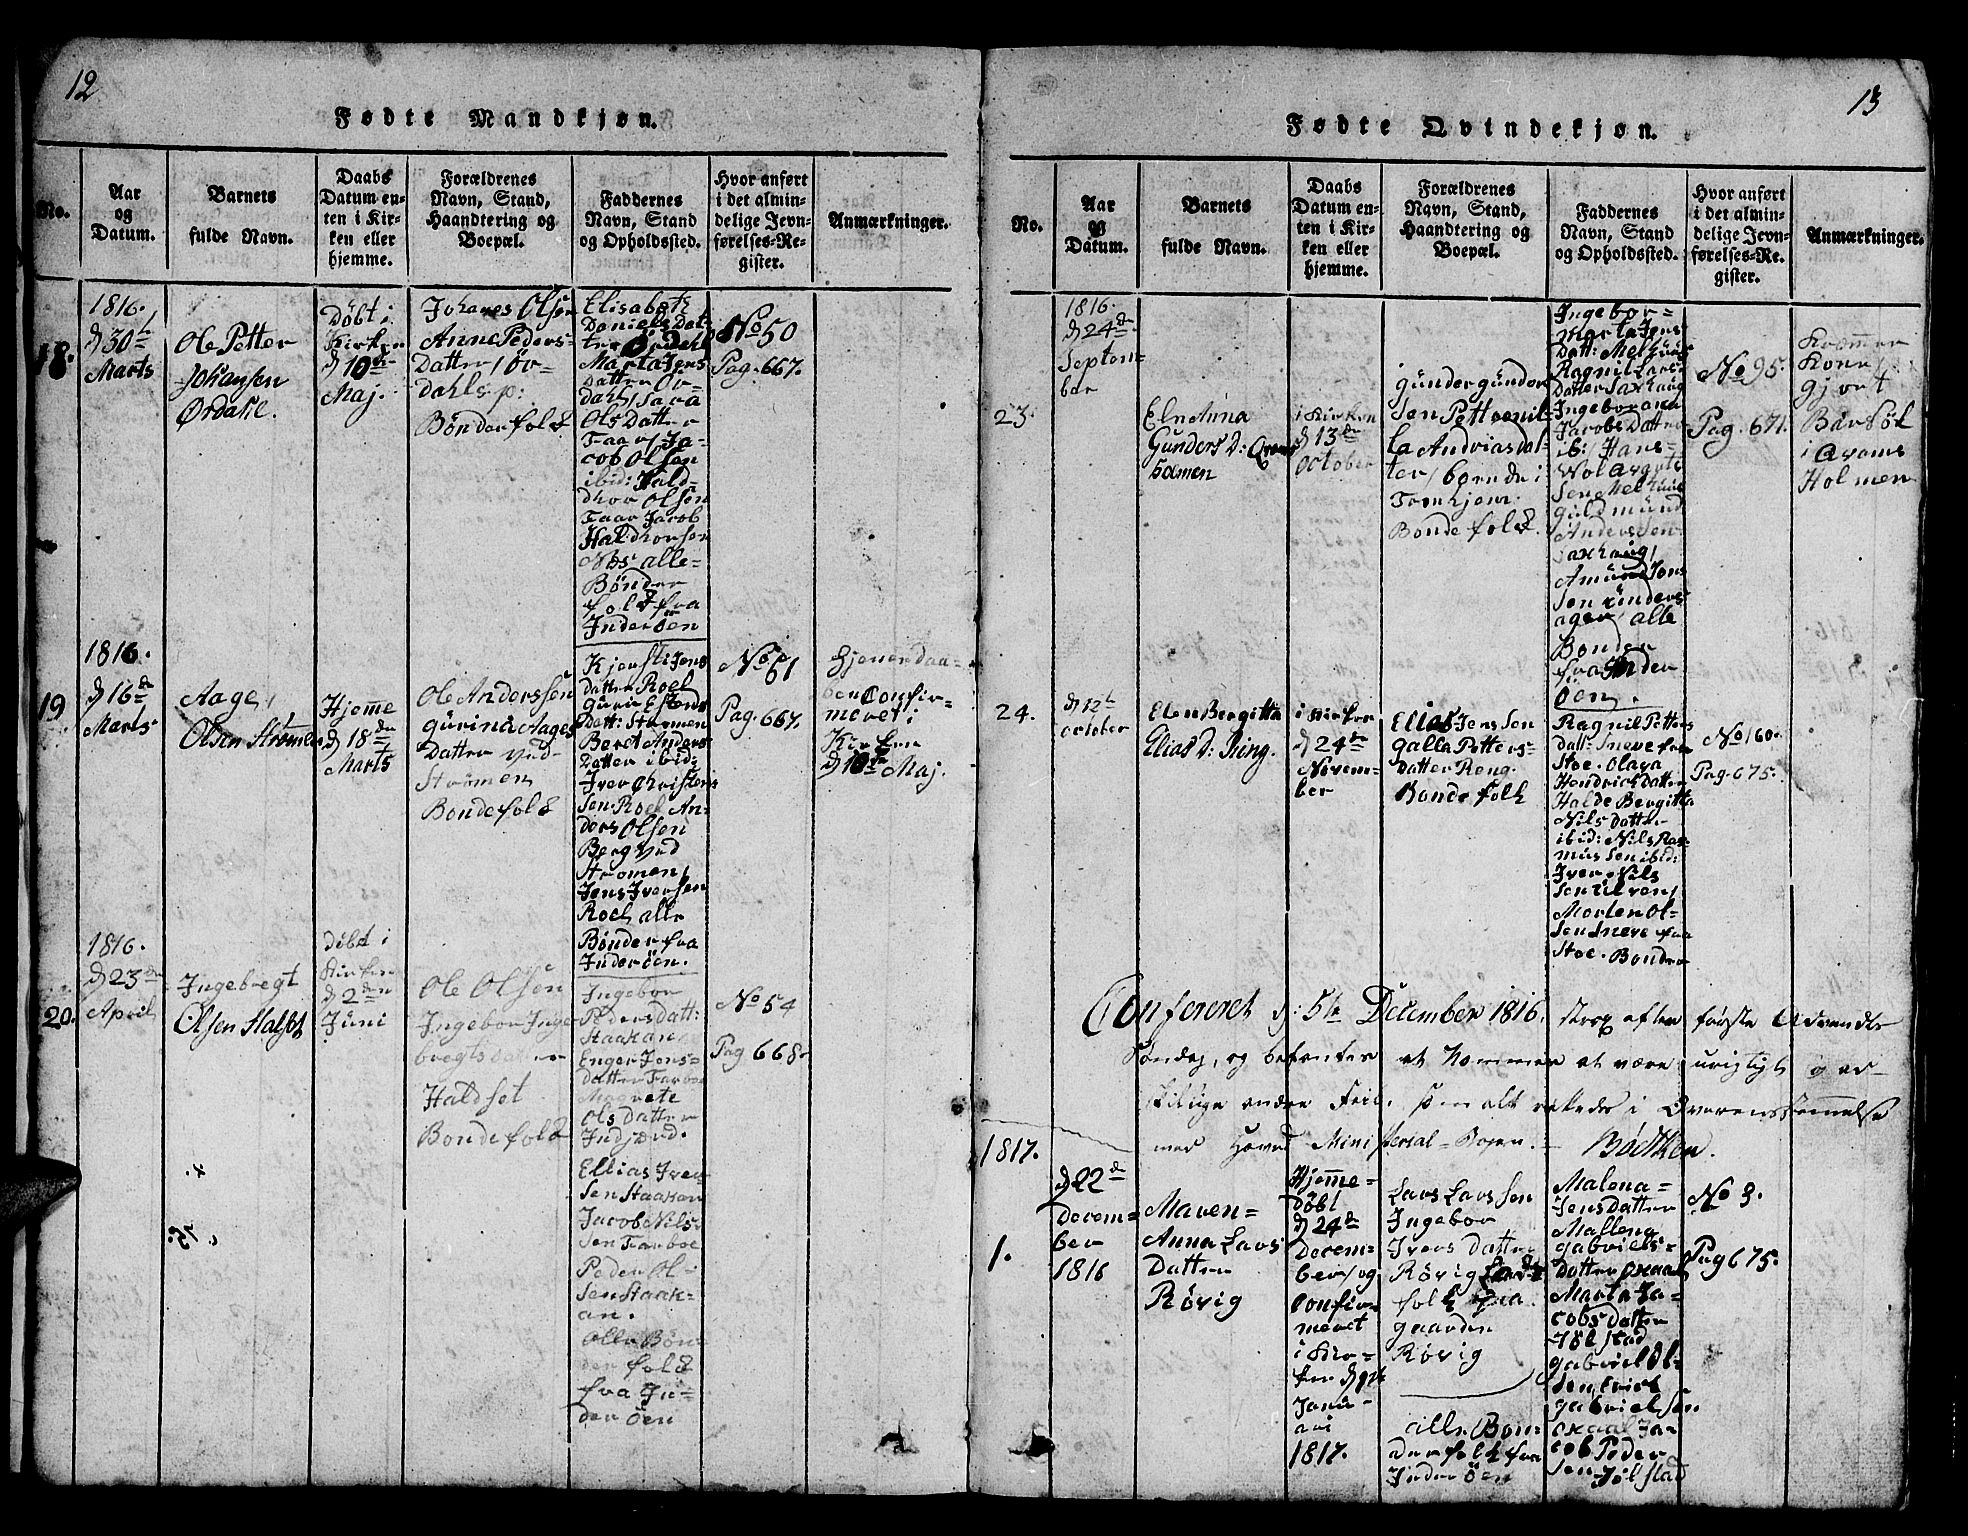 12
Fødte Mandkjøn.
No.
Aar
og
Datum.
Barnets
fulde Navn.
Daabs
Datum en-
ten i Kir-
ken eller
hjemme.
Forældrenes
Navn, Stand,
Haandtering og
Boepæl.
Faddernes
Navn, Stand
og Opholdssted.
Hvor anført
i det almin-
delige Jevn-
førelses-Re-
gister.
Anmærkninger.
18.
1816.
d 30t
Marts
Ole Petter
Johansen
Ørdahl.
Døbt i
Kirken
d 10de
Maj.
Johanes Olsen
Anne Peders-
Datter / Ør-
dahls p:
Bønderfolk
Elisabeth
Daniels Dat-
ter Ørdahl
Marta Jens
Datter Ør-
dahl / Sara
Ols Datter
Faar / Ja-
cob Olsen
ibid: Hald-
dhor Olsen
Faar Jacob
Haldhorsen
Næs alle
Bønder
folk fra
Inderöen
No 50
Pag. 667.
19
1816.
d 16de
Marts
Aage
Olsen Strömen
Hjemme
d 18de
Marts
Ole Anderssen
Gurina Aages
Datter ved
Strömen
Bondefolk
Kjersti Jens
Datter Roel
Guru Estens
Datt: Stormen
Beret Anders
Datter ibid:
Iver Christens
sen Roel An-
ders Olsen
Berg ved
Strömen /
Jens Iversen
Roel alle
Bønder fra
Inderöen.
No 61
Pag. 667.
Hjemmedaa-
ben Confir-
meret i
Kirken
d 10de Maj.
20.
1816.
d 23de
April
Ingebregt
Olsen Halset
Döbt i
Kirken
d 2den
Juni
Ole Olsen
Ingebor Inge-
bregts Datter
Haldset
Bondefolk
Ingebor
Peders Datt:
Staakan
Enger Jens-
datter Farboe
Magrete
Ols Datter
Indjærd.
Ellias Iver
Sen Staakan
Jacob Nils-
sen Farboe
Peder Ol-
sen Staak-
an.
Alle Bøn-
derfolk
fra In-
deröen
No 54
Pag 668.
13
Fødte Qvindekjøn.
No.
Aar
og
Datum.
Barnets
fulde Navn.
Daabs
Datum en-
ten i Kir-
ken eller
hjemme.
Forældrenes
Navn, Stand,
Haandtering og
Boepæl.
Faddernes
Navn, Stand
og Opholdssted.
Hvor anført
i det almin-
delige Jevn-
førelses-Re-
gister.
Anmærkninger.
23.
1816.
d 24de
Septem-
ber
Eln Anna
Gunders D: Qvams
holmen
i Kirken
d 13de
October
Gunder Gunder
Sen Petternil-
la Andriasdat-
ter / boende i
Tronhjem.
Bondefolk.
Ingebor
Marta Jens
Datt: Melhuus
Ragnil Lars
Datter Saxhaug
Ingeborana
Jacobs Datter
ib: Hans
Sen Melhuus
Guldmund
Anderssen
Saxhaug /
Amund Jons
Sen Sunders
ager / alle
Bønder
fra Inder
öen.
No 95.
Pag. 671.
Kone
gjort
Barsöl
i Qvams
Holmen
24.
d 12t
october
Elen Bergitta
Elias D: Reng.
i Kirken
d 24de
Novem-
ber
Ellias Jens Sen
Galla Petters-
datter Reng.
Bondefolk
Ragnil Petters
Datt: Sneve fra
Stoe. Olava
Hendrick Datter
Halde Bergitta
Nils Datter
ibid: Nils Ras-
mus Sen ibid:
Iver Nils
Sen Ulven /
Morten Ol-
Sen Sneve fra
Stoe. Bønder
No 160.
Pag. 675.
Confereret d: 5te December 1816. strax efter første Advents
Søndag, og befunden at Nommer at være urigtigt og ad-
skillige andre Feil, som alt rettedes i Overensstemmelse
med Hoved Ministerial-Bogen. — Bødtker.
1817.
1.
d 22de
Decem-
ber
1816
Maren-
Anna Lars
Datter
Røvig
Hjemme-
døbt
d 24de
Decem-
ber / og
Confir-
meret
i Kir-
ken d
Janu-
ari
1817.
Lars Lars Sen
Ingebor
Ivers Datter
Røvig
folk paa
Gaarden
Røvig
alle Bøn-
derfolk fra
Inderöen
Malena
Jens Datter
Mallena
Gabriels-
Datter Skaal
Marta Ja-
cobs Datter
Jöl stad
Gabriel Ol-
Sen
Gabriel Sen
Skaal Ja-
cob Peder
Sen Jöl stad
No 3.
Pag 675.